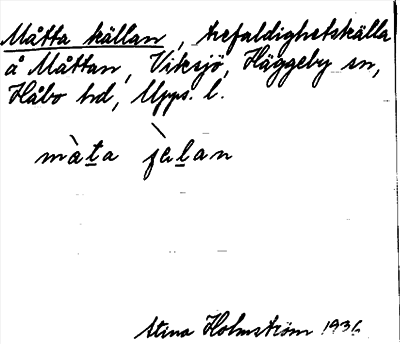 Måtta källan, trefaldighetskälla
å Måttan, Viksjö, Häggeby sn,
Håbo hd, Upps. l.
Stina Holmström 1936